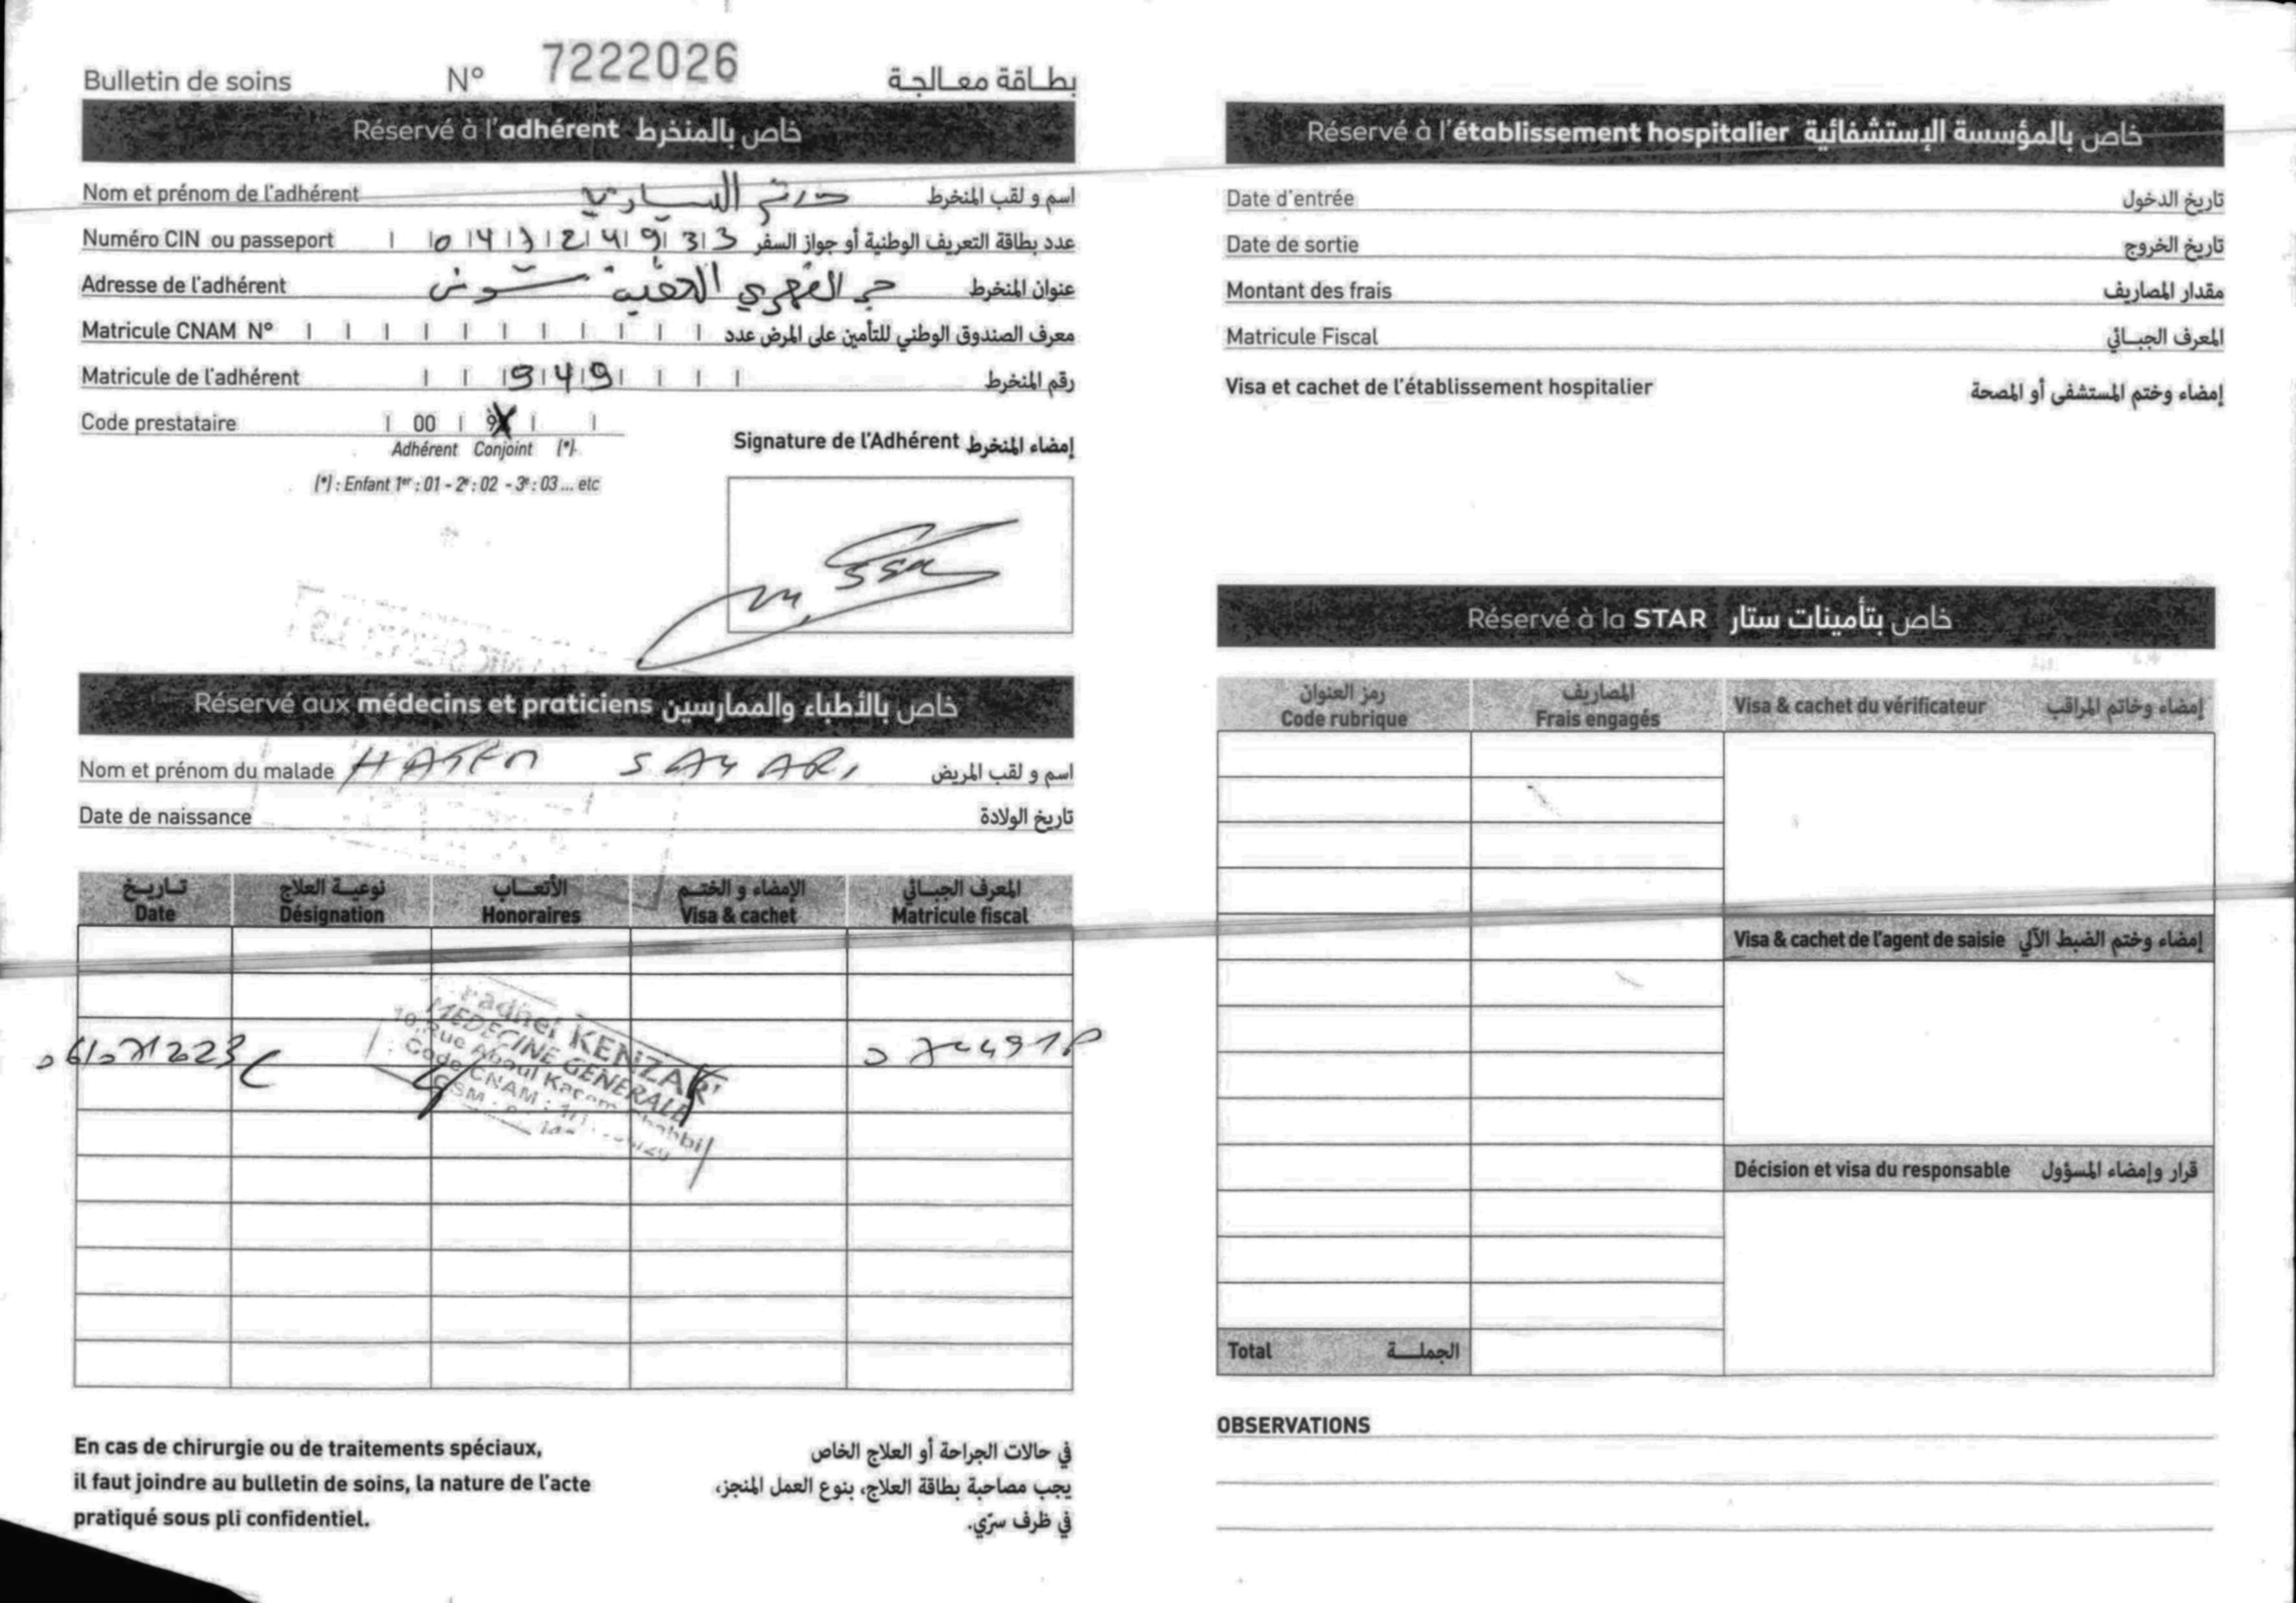 Bulletin de soins N° 7222026 بطاقة معالجة
Réservé à l'adhérent خاص بالمنخرط
Nom et prénom de l'adhérent السياري اسم و لقب المنخرط
Numéro CIN ou passeport عدد بطاقة التعريف الوطنية أو جواز السفر
Adresse de l'adhérent عنوان المنخرط
Matricule CNAM N° معرف الصندوق الوطني للتأمين على المرض عدد
Matricule de l'adhérent 949 رقم المنخرط
Code prestataire 00
Adhérent Conjoint (*)
(*) : Enfant 1er : 01 - 2e : 02 - 3e : 03 ... etc
Signature de l'Adhérent إمضاء المنخرط
Réservé aux médecins et praticiens خاص بالأطباء والممارسين
Nom et prénom du malade HATEM SAYARI اسم و لقب المريض
Date de naissance تاريخ الولادة
تاريخ نوعية العلاج الأتعاب الإمضاء و الختم المعرف الجبائي
Date Désignation Honoraires Visa & cachet Matricule fiscal
KENZARI
MEDECINE GENERALE
10, Rue Aboul Kacem Chabbi
Code CNAM :
GSM :
En cas de chirurgie ou de traitements spéciaux,
il faut joindre au bulletin de soins, la nature de l'acte
pratiqué sous pli confidentiel.
في حالات الجراحة أو العلاج الخاص
يجب مصاحبة بطاقة العلاج، بنوع العمل المنجز،
في ظرف سرّي.
Réservé à l'établissement hospitalier خاص بالمؤسسة الإستشفائية
Date d'entrée تاريخ الدخول
Date de sortie تاريخ الخروج
Montant des frais مقدار المصاريف
Matricule Fiscal المعرف الجبائي
Visa et cachet de l'établissement hospitalier إمضاء وختم المستشفى أو المصحة
Réservé à la STAR خاص بتأمينات ستار
رمز العنوان المصاريف
Code rubrique Frais engagés Visa & cachet du vérificateur إمضاء وخاتم المراقب
Visa & cachet de l'agent de saisie إمضاء وختم الضبط الآلي
Décision et visa du responsable قرار وإمضاء المسؤول
Total الجملة
OBSERVATIONS